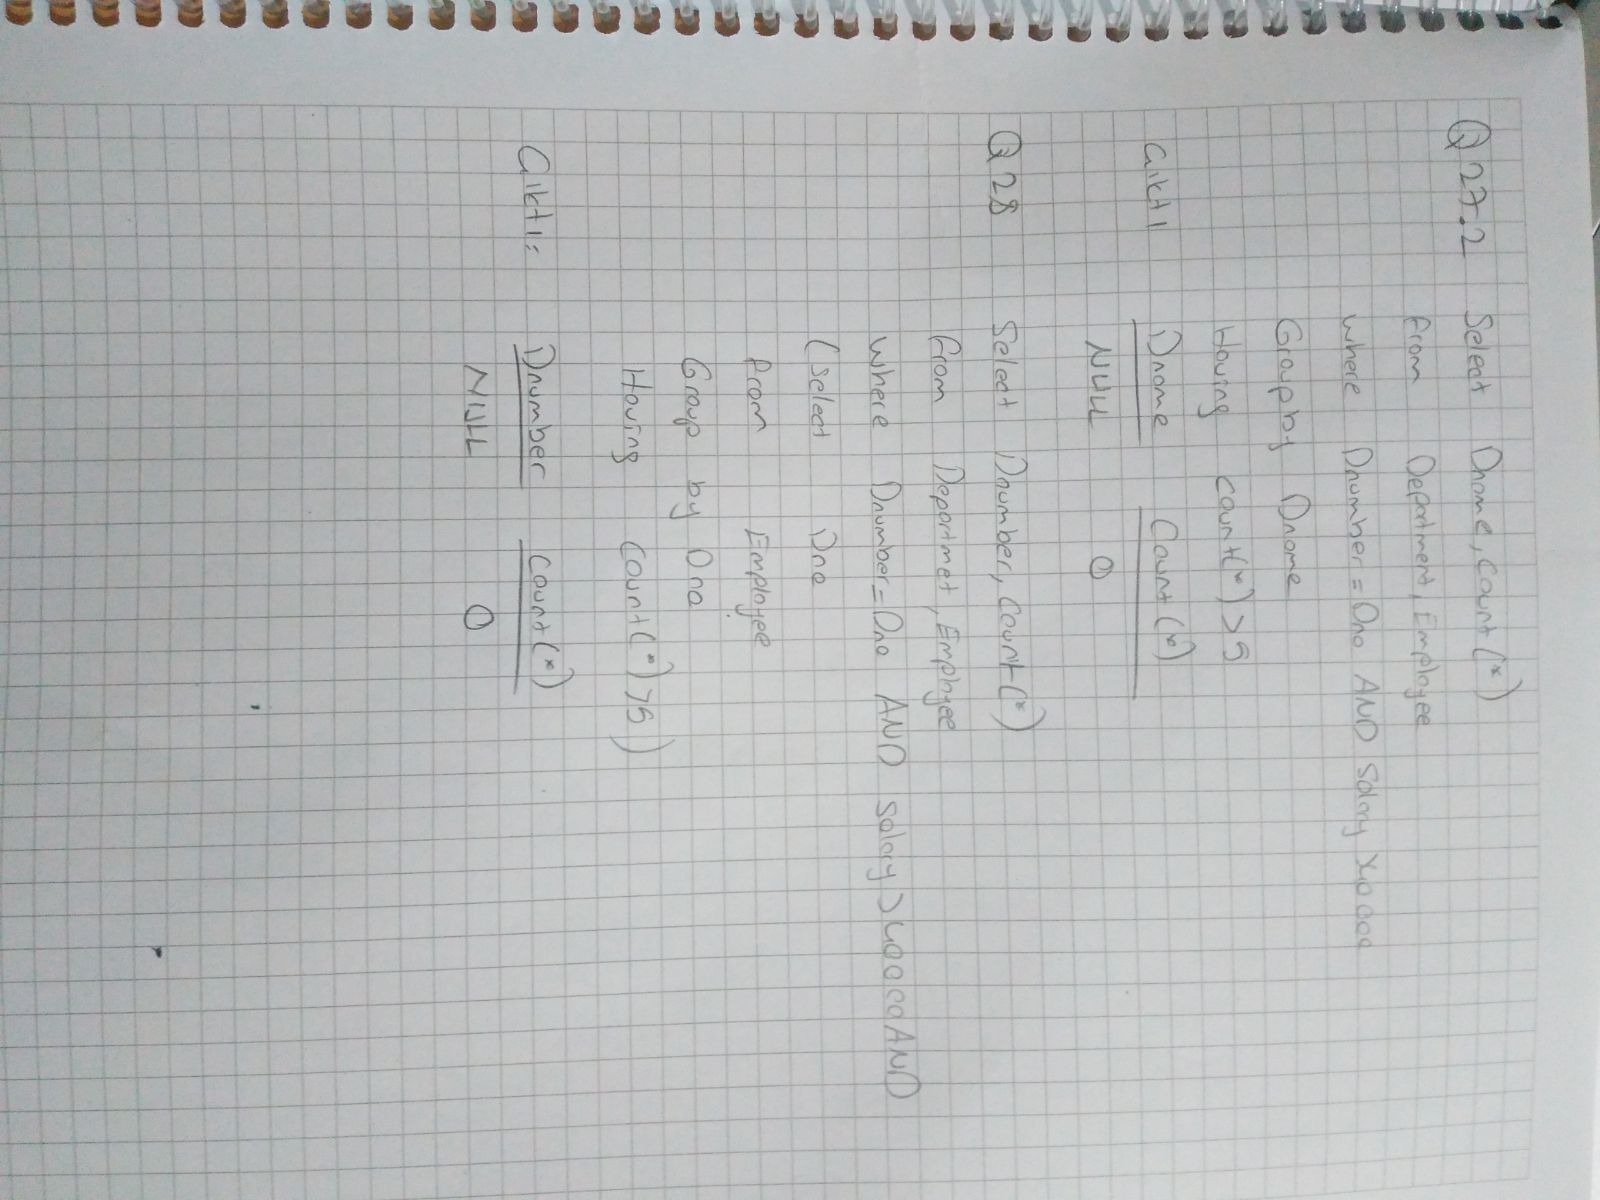 Q 27.2 Select Dname, Count(*)
from Department, Employee
where Dnumber = Dno AND Salary >40000
Group by Dname
Having count(*) >5
Çıktı Dname Count(*)
NULL 0
Q 28 Select Dnumber, Count(*)
from Departmet, Employee
where Dnumber = Dno AND salary >40000 AND
(select Dno
from Employee
Group by Dno
Having Count(*) >5)
Çıktı: Dnumber Count(*)
NULL 0